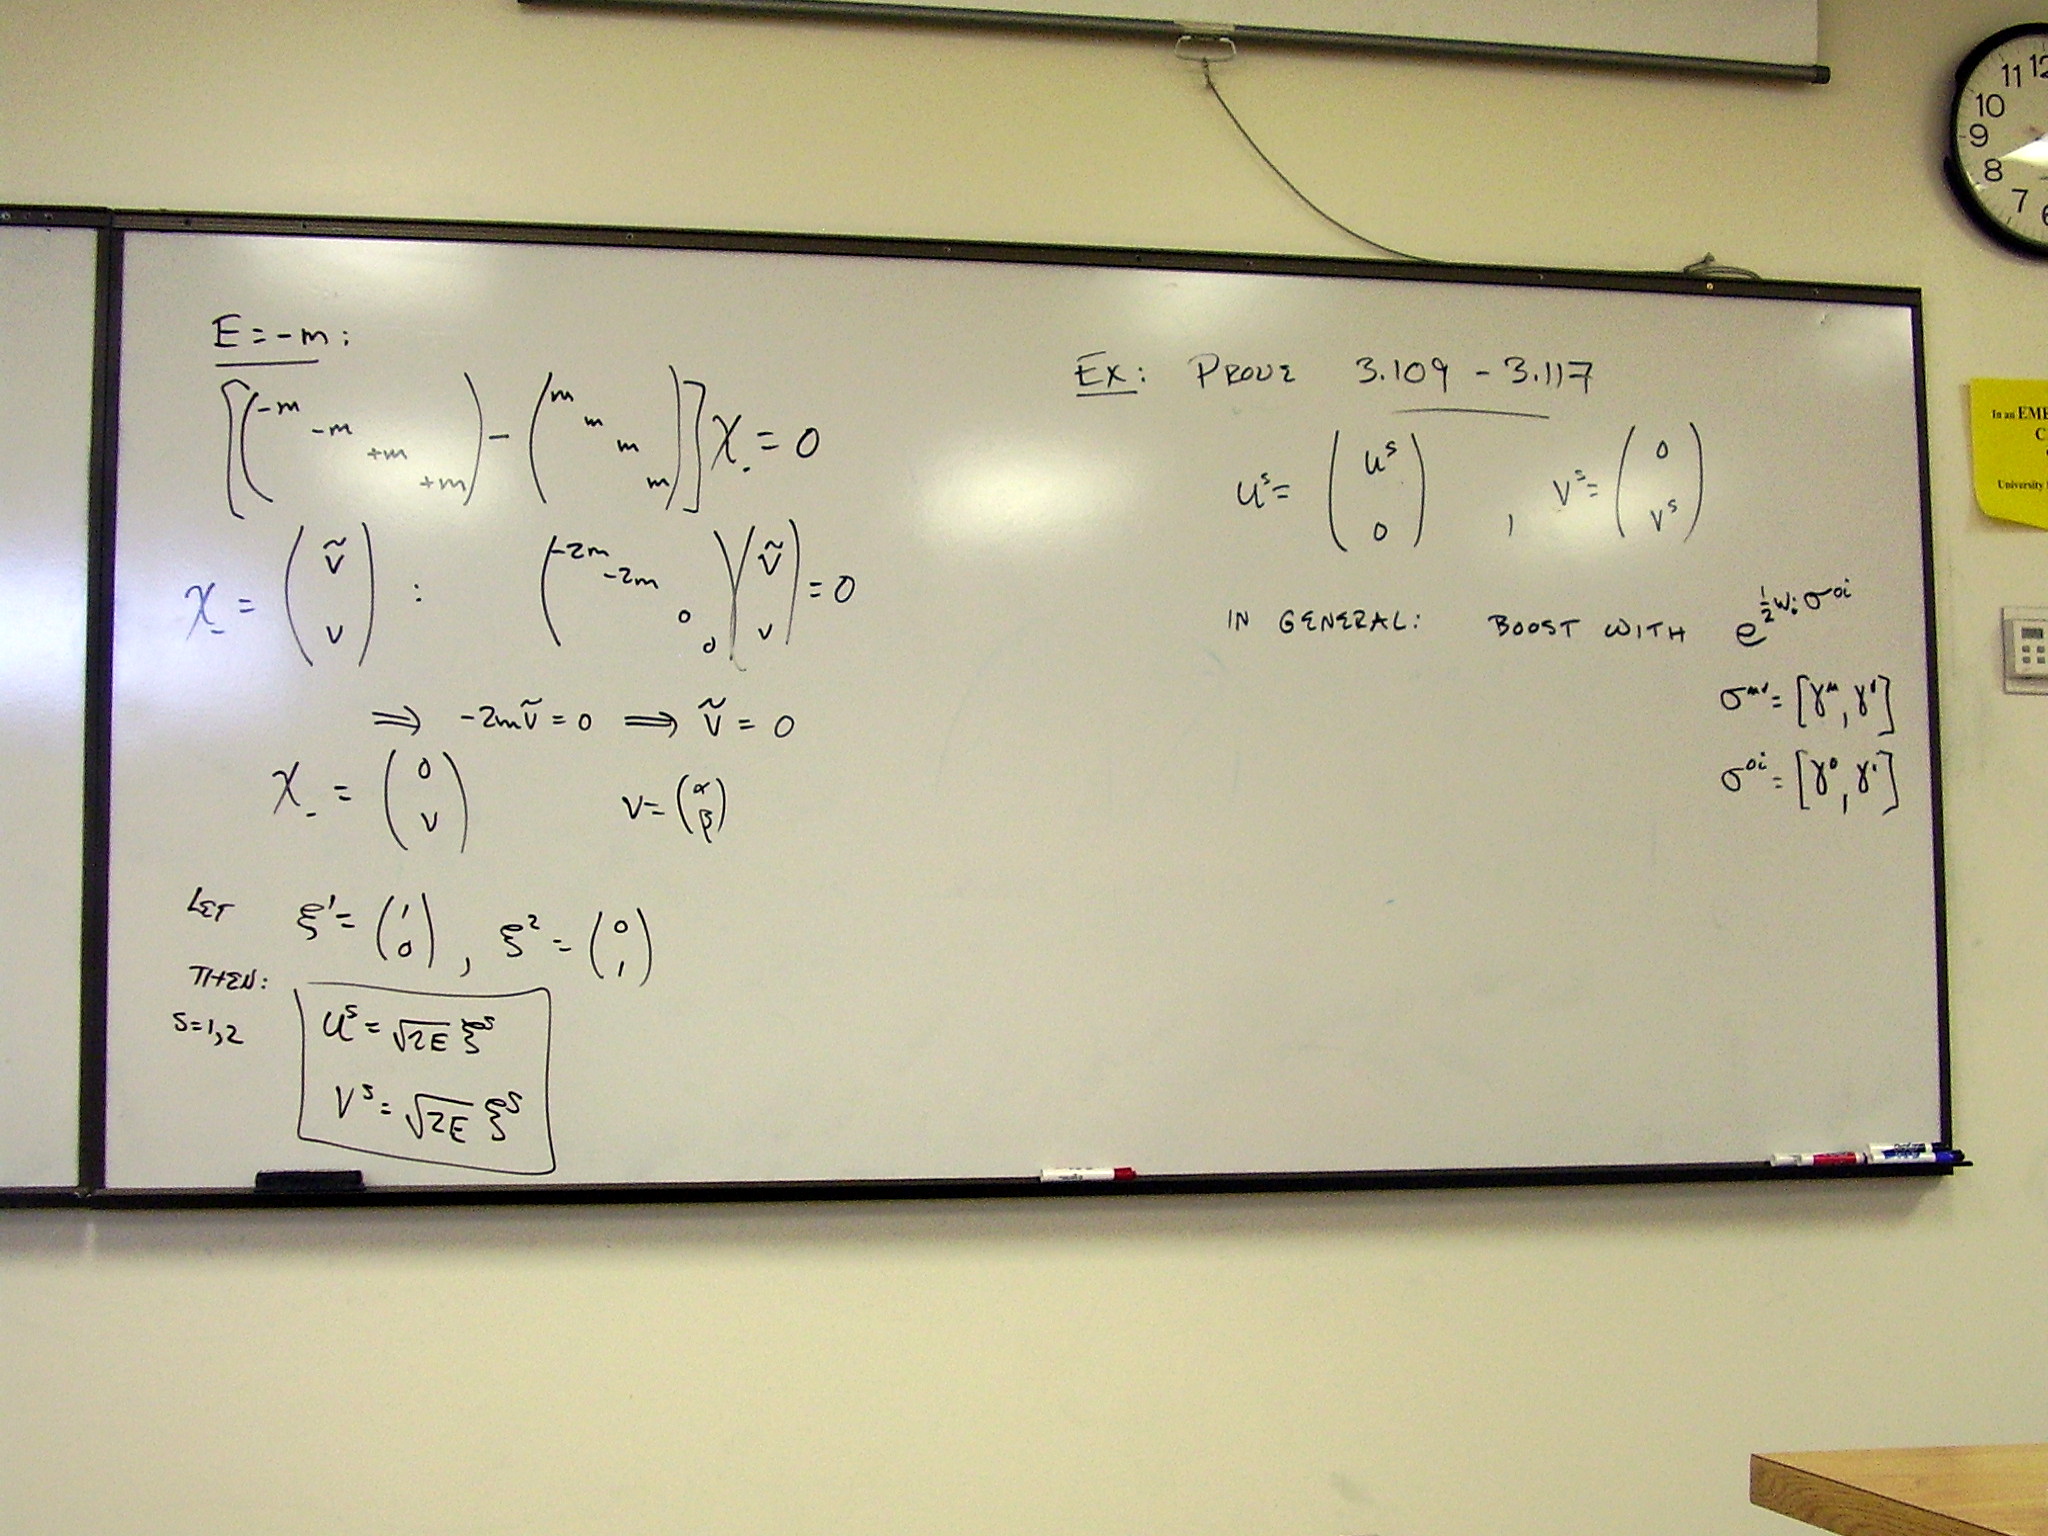 E = -m :
[( -m -m +m +m ) - ( m m m m )] χ_ = 0
χ_ = ( ṽ v ) : ( -2m -2m 0 0 ) ( ṽ v ) = 0
⟹ -2mṽ = 0 ⟹ ṽ = 0
χ_ = ( 0 v ) v = ( α β )
LET ξ¹ = ( 1 0 ) , ξ² = ( 0 1 )
THEN:
S=1,2
u^s = √2E ξ^s
v^s = √2E ξ^s
EX: PROVE 3.109 - 3.117
u^s = ( u^s 0 ) , v^s = ( 0 v^s )
IN GENERAL: BOOST WITH e^{½ω_i σ^{0i}}
σ^{μν} = [γ^μ, γ^ν]
σ^{0i} = [γ^0, γ^i]
11 12
10
9
8
7
6
In an EME
C
University